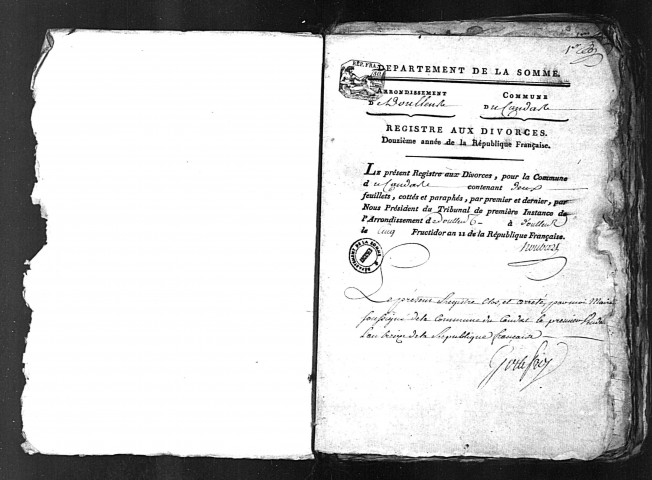 1er
RÉP. FRA.
DÉPARTEMENT DE LA SOMME.
ARRONDISSEMENT COMMUNE
D e Doullens Du Candas
REGISTRE AUX DIVORCES.
Douzième année de la République Française.
LE présent Registre aux Divorces, pour la Commune
d u Candas contenant deux
feuillets, cottés et paraphés, par premier et dernier, par
Nous Président du Tribunal de première Instance de
l'Arrondissement de Doullens à Doullens
le cinq Fructidor an 11 de la République Française.
DÉPARTEMENT DE LA SOMME
Le présent Registre clos, et arreté, par moi Maire
soussigné de la Commune du Candas le premier
l'an treize de la République française